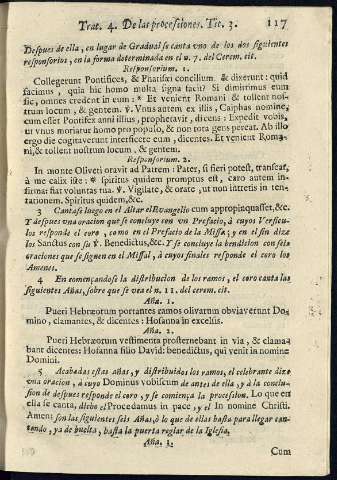 Trat. 4. De las procesiones. Tit. 3. 117
Despues de ella, en lugar de Gradual se canta uno de los dos siguientes
responsorios, en la forma determinada en el n. 7. del Cerem. cit.
Responsorium. 1.
Collegerunt Pontifices, & Pharisæi concilium & dixerunt: quid
facimus, quia hic homo multa signa facit? Si dimittimus eum
sic, omnes credent in eum: * Et venient Romani & tollent nos-
trum locum, & gentem. ℣. Vnus autem ex illis, Caiphas nomine,
cum esset Pontifex anni illius, prophetavit, dicens: Expedit vobis,
ut vnus moriatur homo pro populo, & non tota gens pereat. Ab illo
ergo die cogitaverunt interficere eum, dicentes. Et venient Roma-
ni, & tollent nostrum locum, & gentem.
Responsorium. 2.
In monte Oliveti oravit ad Patrem: Pater, si fieri potest, transeat,
à me calix iste: * spiritus quidem promptus est, caro autem in-
firma: fiat voluntas tua. ℣. Vigilate, & orate, ut non intretis in ten-
tationem. Spiritus quidem, &c.
3 Cantase luego en el Altar el Evangelio cum appropinquasset, &c.
Y despues vna oracion que se concluye con vn Prefacio, à cuyos Versicu-
los responde el coro, como en el Prefacio de la Missa; y en el fin dize
los Sanctus con su ℣. Benedictus, &c. Y se concluye la bendicion con seis
oraciones que se siguen en el Missal, à cuyos finales responde el coro los
Amenes.
4 En començandose la distribucion de los ramos, el coro canta las
siguientes Añas, sobre que se vea el n. 11. del cerem. cit.
Aña. 1.
Pueri Hebræorum portantes ramos olivarum obviaverunt Do-
mino, clamantes, & dicentes: Hosanna in excelsis.
Aña. 2.
Pueri Hebræorum vestimenta prosternebant in via, & clama-
bant dicentes: Hosanna filio David: benedictus, qui venit in nomine
Domini.
5 Acabadas estas añas, y distribuidos los ramos, el celebrante dize
vna oracion, à cuyo Dominus vobiscum de antes de ella, y à la conclu-
sion de despues responde el coro, y se comiença la procession. Lo que en
ella se canta, dicho el Procedamus in pace, y el In nomine Christi.
Amen son las siguientes seis Añas, ò lo que de ellas basta para llegar can-
tando, ya de buelta, hasta la puerta reglar de la Iglesia.
Aña. 3.
Cum